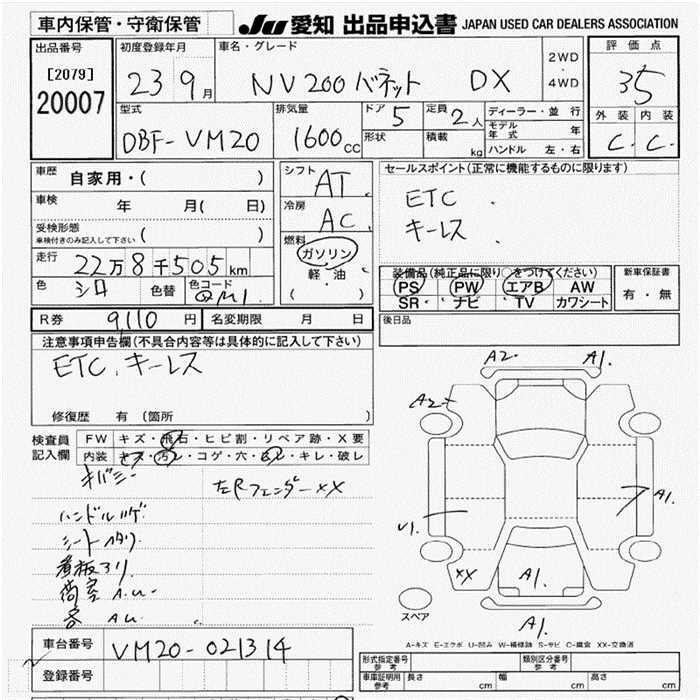 車内保管・守衛保管 JU 愛知 出品申込書 JAPAN USED CAR DEALERS ASSOCIATION
出品番号 初度登録年月 車名・グレード 評価点
[2079] 23 9月 NV200バネット DX 2WD・4WD 35
20007
型式 排気量 ドア 5 定員 2人 ディーラー・並行 外装 内装
DBF-VM20 1600cc 形状 積載 kg モデル年式 年 C. C.
ハンドル 左・右
車歴 自家用・( ) シフト AT. セールスポイント(正常に機能するものに限ります)
車検 年 月( 日) 冷房 AC. ETC
受検形態 ( ) キーレス
車検付きのみ記入して下さい
燃料 ガソリン
走行 22万8千505km 軽・油 装備品(純正品に限り○をつけてください) 新車保証書
色 シロ 色替 色コード QM1 ( ) PS PW エアB AW 有・無
SR ナビ TV カワシート
R券 9,110円 名変期限 月 日 後日品
注意事項申告欄(不具合内容等は具体的に記入して下さい)
ETC.キーレス
修復歴 有(箇所 )
A2. A1.
A2
検査員 FW キズ・飛石・ヒビ割・リペア跡・X要
記入欄 内装 キズ・汚レ・コゲ・穴・キレ・破レ
左Rフェンダー XX
A1.
ハンドルハゲ
シートヘタリ
U1.
XX A1.
スペア A1.
A-キズ E-エクボ U-凹み W-補修跡 S-サビ C-腐食 XX-交換済
車台番号 VM20-021314
登録番号
形式指定番号 参考 類別区分番号 参考
車庫証明用 参考 長さ cm 幅 cm 高さ cm